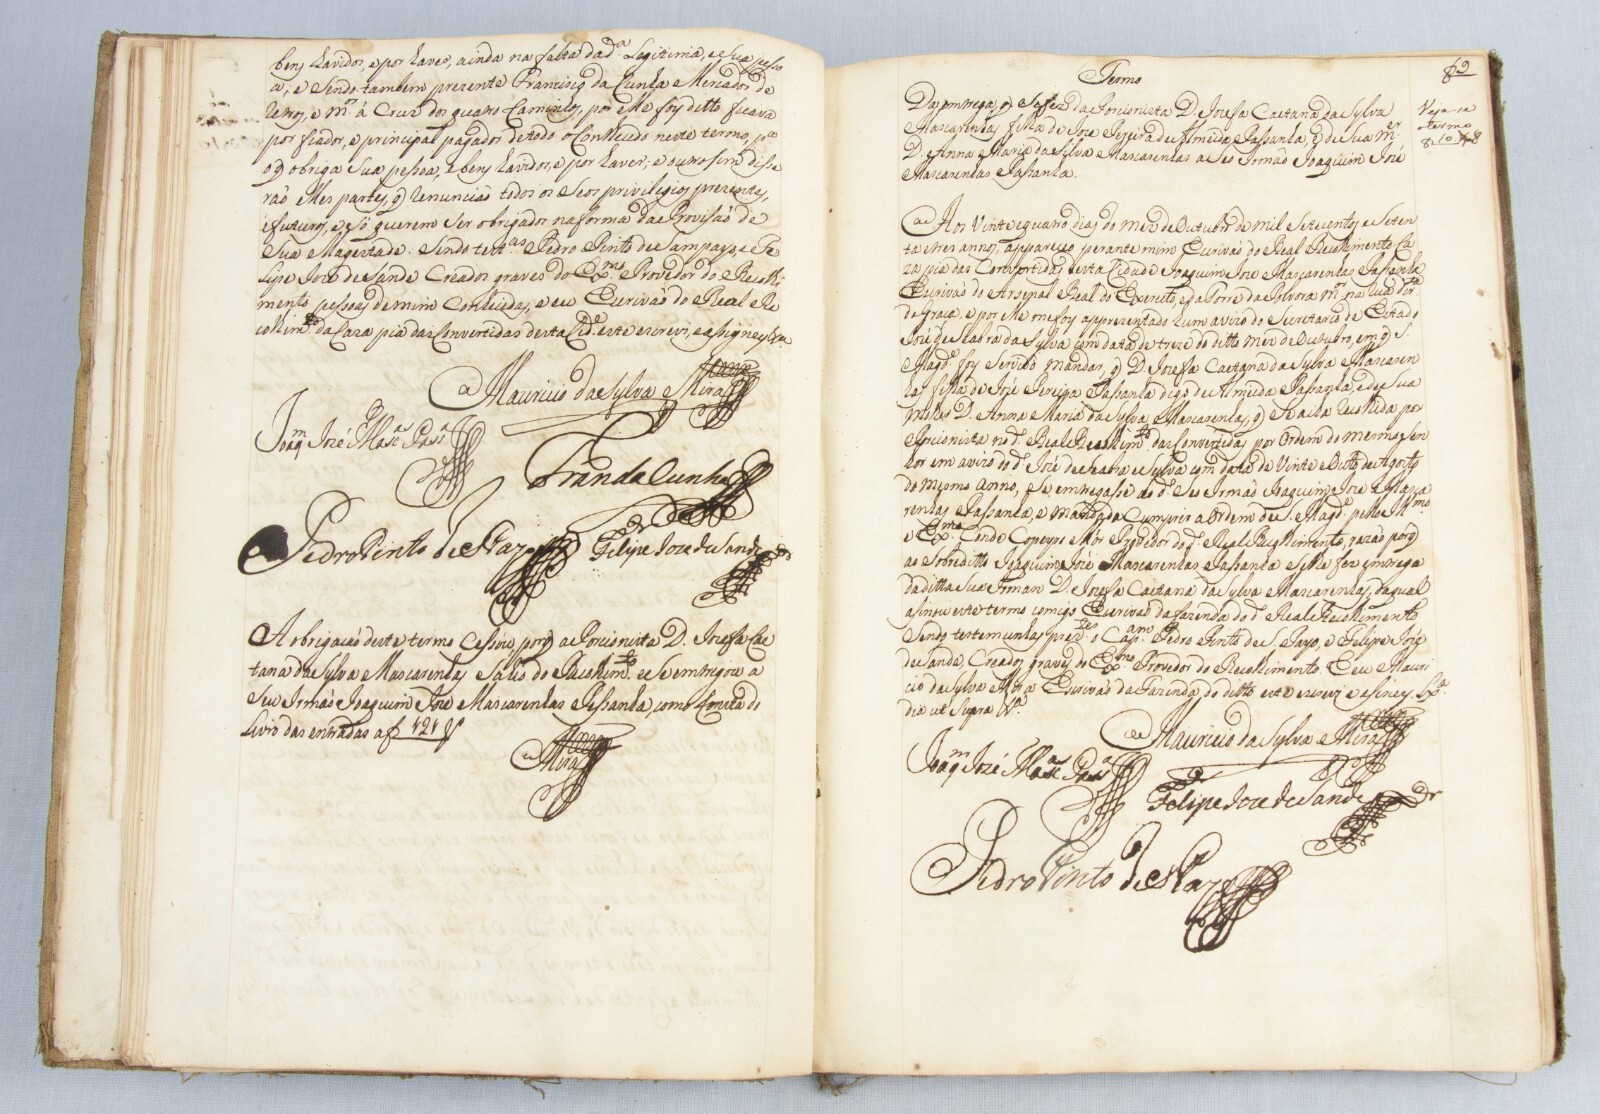 bens havidos, e por haver, ainda na falta da d.ª Legitima, e sua pesso
a; e sendo tambem prezente Francisco da Cunha e Mercador de
e m.or á Cruz dos quatro Caminhos, por elle foy ditto ficava
por fiador, e principal pagador de todo o contheudo neste termo, p.ª
o q̃ obriga sua pessoa, e bens havidos, e por haver; e outro sim disse
raõ elles partes, q̃ renunciaõ todos os seos privilegios prezentes,
e futuros, e só querem ser obrigados na forma da Provisaõ de
Sua Magestade. Sendo test.as Pedro Pinto de Sampayo, e Fe
lipe Jozé de Sande Creados graves do Ex.mo Provedor do Recolhi
mento pessoas de mim conhecidas, e eu Escrivaõ do Real Re
colhim.to da Caza pia das Convertidas desta Cid.e este escrevi, e assigney
Mauricio da Sylva e Mira
Joaq.m Jozé Mas.as Pass.a
Fran da Cunha
Pedro Pinto de S Payo
Felipe Joze de Sande
A obrigaçaõ deste termo cessou, porq̃ a Porcionista D. Jozefa Cae
tana da Sylva e Mascarenhas sahio do Recolhim.to e se entregou a
seu Irmaõ Joaquim Joze Mascarenhas Passanha, como consta do
Livro das entradas a f
Mira
Termo
89
Da entrega, q̃ se fez da Porcionista D. Jozefa Caetana da Sylva
Mascarenhas filha de Joze Pereira de Almeida Passanha, e de sua M.er
D. Anna Maria da Sylva e Mascarenhas a seo Irmaõ Joaquim José
Mascarenhas Passanha.
Veja-se
o termo
Aos Vinte e quatro dias do mez de Outubro de mil setecentos e seten
ta e tres annos, appareceo perante mim Escrivaõ do Real Recolhimento Ca
za pia das Convertidas desta Cidade Joaquim Joze Mascarenhas Passanha
Escrivaõ do Arsenal Real do Exercito, e da Torre da Polvora m.or na rua dir.ta
da Graça, e por elle me foy apprezentado hum avizo do Secretario de Estado
José de Seabra da Sylva com data de treze do ditto mez de Outubro, em q̃ S.
Mag.de foy servido mandar, q̃ D. Jozefa Caetana da Sylva e Mascaren
has filha de José Pereira Passanha digo de Almeida Passanha, e de sua
mulher D. Anna Maria da Sylva e Mascarenhas, q̃ se acha recolhida por
Porcionista no d.º Real Recolhim.to das Convertidas por Ordem do mesmo Sen
hor em avizo do d.º José de Seabra e Sylva com data de Vinte e oito de Agosto
do mesmo anno, e se entregasse ao d.º seo Irmaõ Joaquim Joze e Masca
renhas Passanha, e mandada cumprir a Ordem de S. Mag.de pello Ill.mo
e Ex.mo Conde Copeyro Mór Provedor do d.º Real Recolhimento, razaõ porq̃
ao sobreditto Joaquim José Mascarenhas Passanha se lhe fez entrega
da ditta sua Irman D. Jozefa Caetana da Sylva e Mascarenhas, da qual
assinou este termo comigo Escrivaõ da fazenda do d.º Real Recolhimento
sendo testemunhas prez.tes o Cap.am Pedro Pinto de S. Payo, e Felipe Joze
de Sande, Creados graves do Ex.mo Provedor do Recolhimento. E eu Mauri
cio da Sylva e Mira Escrivaõ da Fazenda do ditto este escrevi e assiney. Lx.ª
dia ut supra
Mauricio da Sylva e Mira
Joaq.m José Mas.as Pass.a
Felipe Joze de Sande
Pedro Pinto de S Payo